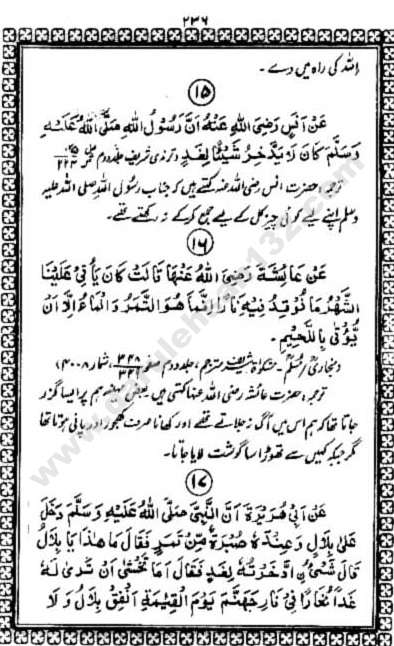 ۲۳۶
اللہ کی راہ میں دے۔
۱۵
عَنْ اَنَسٍ رَضِیَ اللهُ عَنْهُ اَنَّ رَسُوْلَ اللهِ صَلَّی اللهُ عَلَیْهِ
وَسَلَّمَ کَانَ لَا یَدَّخِرُ شَیْئًا لِغَدٍ۔ ترمذی شریف جلد دوم
ترجمہ: حضرت انس رضی اللہ عنہ کہتے ہیں کہ جناب رسول اللہ صلی اللہ علیہ
وسلم اپنے لیے کوئی چیز کل کے لیے جمع کر کے نہ رکھتے تھے۔
۱۶
عَنْ عَائِشَةَ رَضِیَ اللهُ عَنْهَا قَالَتْ کَانَ یَأْتِیْ عَلَیْنَا
الشَّهْرُ مَا نُوْقِدُ فِیْهِ نَارًا اِنَّمَا هُوَ التَّمَرُ وَالْمَاءُ اِلَّا اَنْ
یُّؤْتٰی بِاللُّحَیْمِ۔
(بخاری / مسلم۔ مشکوٰۃ شریف مترجم، جلد دوم صفحہ ، شمار ۴۰۰۸)
ترجمہ: حضرت عائشہ رضی اللہ عنہا کہتی ہیں بعض مہینہ ہم پر ایسا گزر
جاتا تھا کہ ہم اس میں آگ نہ جلاتے تھے اور کھانا صرف کھجور اور پانی ہوتا تھا
مگر جبکہ کہیں سے تھوڑا سا گوشت لایا جاتا۔
۱۷
عَنْ اَبِیْ هُرَیْرَةَ اَنَّ النَّبِیَّ صَلَّی اللهُ عَلَیْهِ وَسَلَّمَ دَخَلَ
عَلٰی بِلَالٍ وَعِنْدَهٗ صُبْرَةٌ مِّنْ تَمَرٍ فَقَالَ مَا هٰذَا یَا بِلَالُ
قَالَ شَیْءٌ اِدَّخَرْتُهٗ لِغَدٍ فَقَالَ اَمَا تَخْشٰی اَنْ تَرٰی لَهٗ
غَدًا بُخَارًا فِیْ نَارِ جَهَنَّمَ یَوْمَ الْقِیٰمَةِ اَنْفِقْ بِلَالُ وَلَا